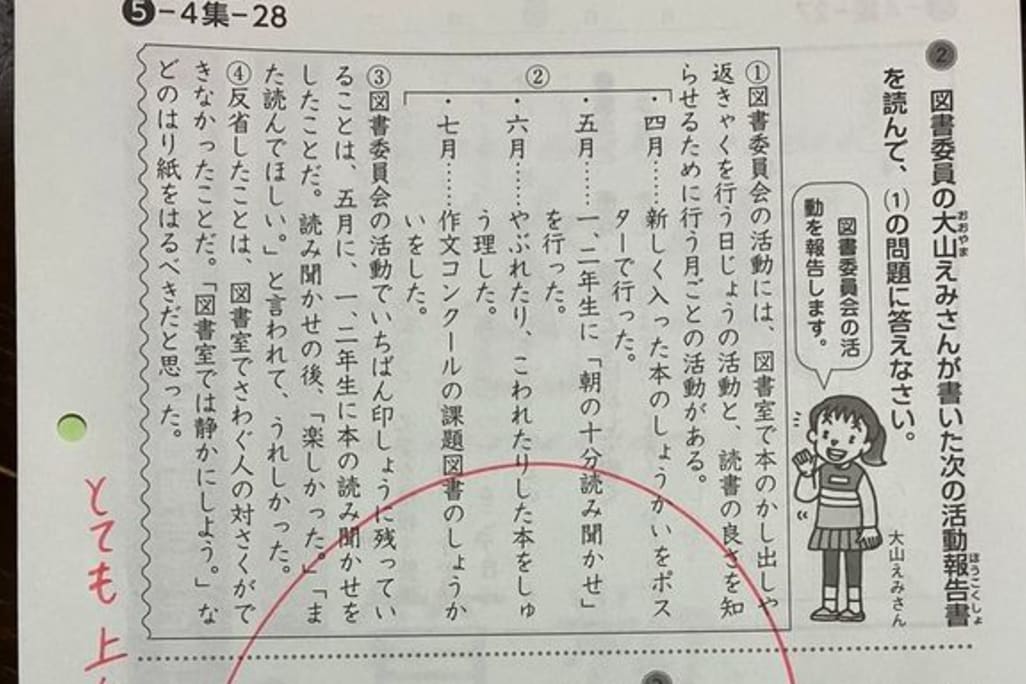 ❺-4集-28
❷ 図書委員の大山えみさんが書いた次の活動報告書
おおやま
ほうこくしょ
を読んで、(1)の問題に答えなさい。
図書委員会の活
動を報告します。
大山えみさん
①図書委員会の活動には、図書室で本のかし出しや
返きゃくを行う日じょうの活動と、読書の良さを知
らせるために行う月ごとの活動がある。
②
・四月……新しく入った本のしょうかいをポス
ターで行った。
・五月……一、二年生に「朝の十分読み聞かせ」
を行った。
・六月……やぶれたり、こわれたりした本をしゅ
う理した。
・七月……作文コンクールの課題図書のしょうか
いをした。
③図書委員会の活動でいちばん印しょうに残ってい
ることは、五月に、一、二年生に本の読み聞かせを
したことだ。読み聞かせの後、「楽しかった。」「ま
た読んでほしい。」と言われて、うれしかった。
④反省したことは、図書室でさわぐ人の対さくがで
きなかったことだ。「図書室では静かにしよう。」な
どのはり紙をはるべきだと思った。
とても上